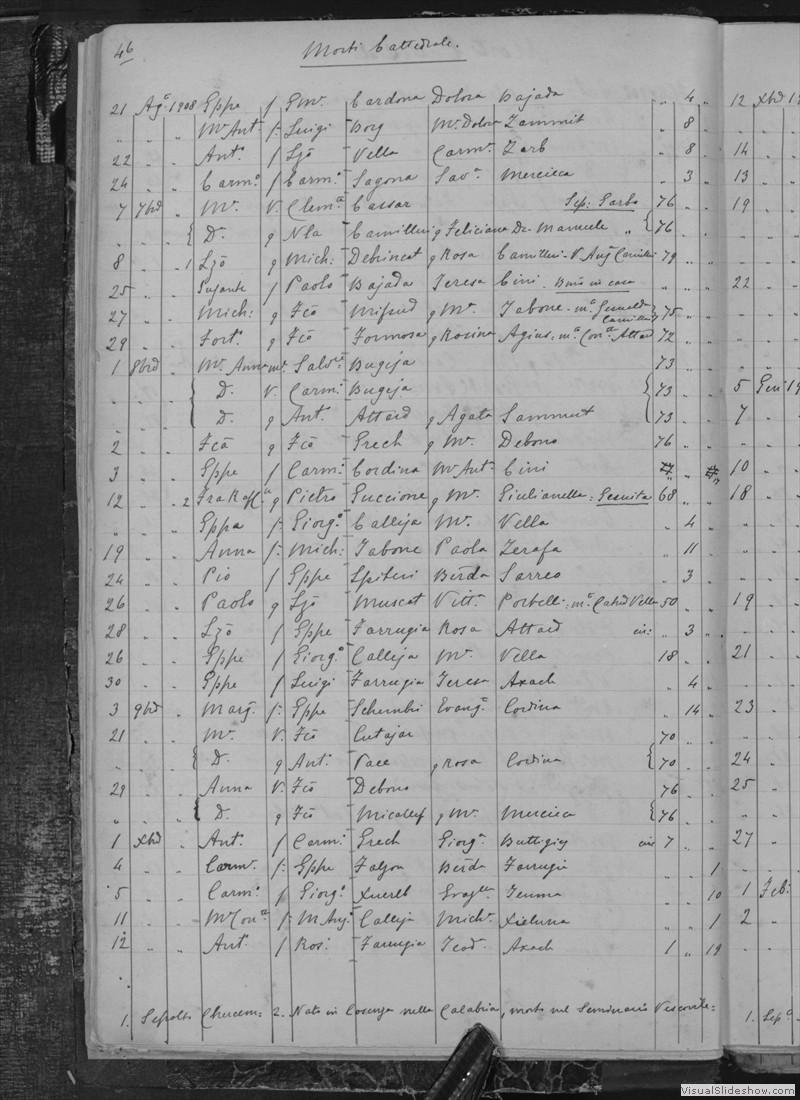 46 Morti Cattedrale.
21 Agº 1908 Gppe f Gmª Cardona Dolora Bajada " 4 "
" " " Mª Antª f: Luigi Borg Mª Dolora Zammit " 8 "
22 " " Antº f Lzō Vella Carmª Zarb " 8 "
24 " " Carmº f Carmº Sagona Savª Mercieca " 3 "
7 7bre " Mª V. Clemte Cassar Sep: Sarbo 76 "
" " " { D. q Nla Camilleri q Feliciana De Manuele " { 76 "
8 " " 1 Lzō q Mich: Debrincat q Rosa Camilleri - V. Ang Camilleri 79 "
25 " " Infante f Paolo Bajada Teresa Cini - Batt in casa " " "
27 " " Mich: q Fcō Mifsud q Mª Tabone - mº Camilleri } 75 "
29 " " Fortº q Fcō Formosa q Rosina Agius = mº Conª Attard 72 "
1 8bre " Mª Anna mª Salvre Bugeja 73
" " " { D. V. Carmº Bugeja { 73 "
" " " { D. q Antº Attard q Agata Sammut { 73 "
2 " " Fcō q Fcō Grech q Mª Debono 76 "
3 " " Gppe f Carmº Cordina Mª Antª Cini
12 " " 2 q Pietro Puccione q Mª Giulianella = Gesuita 68 "
" " " Gppa f: Giorgº Calleja Mª Vella " 4 "
19 " " Anna f: Mich: Tabone Paola Zerafa " 11 "
24 " " Pio f Gppe Spiteri Berda Sarreo " 3 "
26 " " Paolo q Lzō Muscat Vittª Portelli = mº Catª Vella 50 "
28 " " Lzō f Gppe Farrugia Rosa Attard cir: " 3 "
26 " " Gppe f Giorgº Calleja Mª Vella 18 "
30 " " Gppe f Luigi Farrugia Teresa Axach " 4 "
3 9bre " Marg: f: Gppe Schembri Evangª Cordina " 14 "
21 " " Mª V. Fcō Cutajar 70 "
" " " { D. q Antº Pace q Rosa Cordina { 70 "
29 " " Anna V. Fcō Debono 76 "
" " " { D. q Fcō Micallef q Mª Mercieca { 76 "
1 Xbre " Antº f Carmº Grech Giorgª Buttigieg cir 7 "
4 " " Carmª f: Gppe Falzon Berda Farrugia " " 1
5 " " Carmº f Giorgº Xuereb Graztta Zemma " " 10
11 " " Mª Conª f: M. Angº Calleja Michª Xicluna " " 1
12 " " Antº f Rosº Farrugia Teodª Axach 1 " 19
1. Sepolto Chercem = 2. Nato in Cosenza nella Calabria, morto nel Seminario Vescovile =
12 Xbre 19
14
13
19
22
5 Gen 19
7
10
18
19
21
23
24
25
27
1 Feb:
2
1. Sepº
VisualSlideshow.com